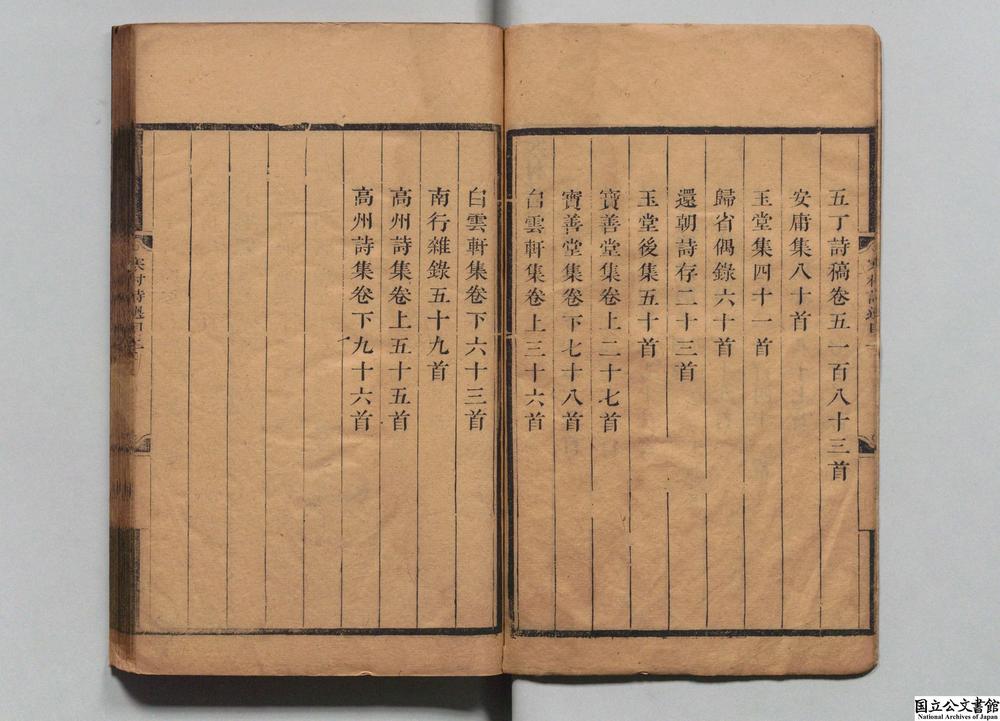 五丁詩稿卷五一百八十三首
安庸集八十首
玉堂集四十一首
歸省偶錄六十首
還朝詩存二十三首
玉堂後集五十首
寶善堂集卷上二十七首
寶善堂集卷下七十八首
白雲軒集卷上三十六首
白雲軒集卷下六十三首
南行雜錄五十九首
高州詩集卷上五十五首
高州詩集卷下九十六首
国立公文書館
National Archives of Japan